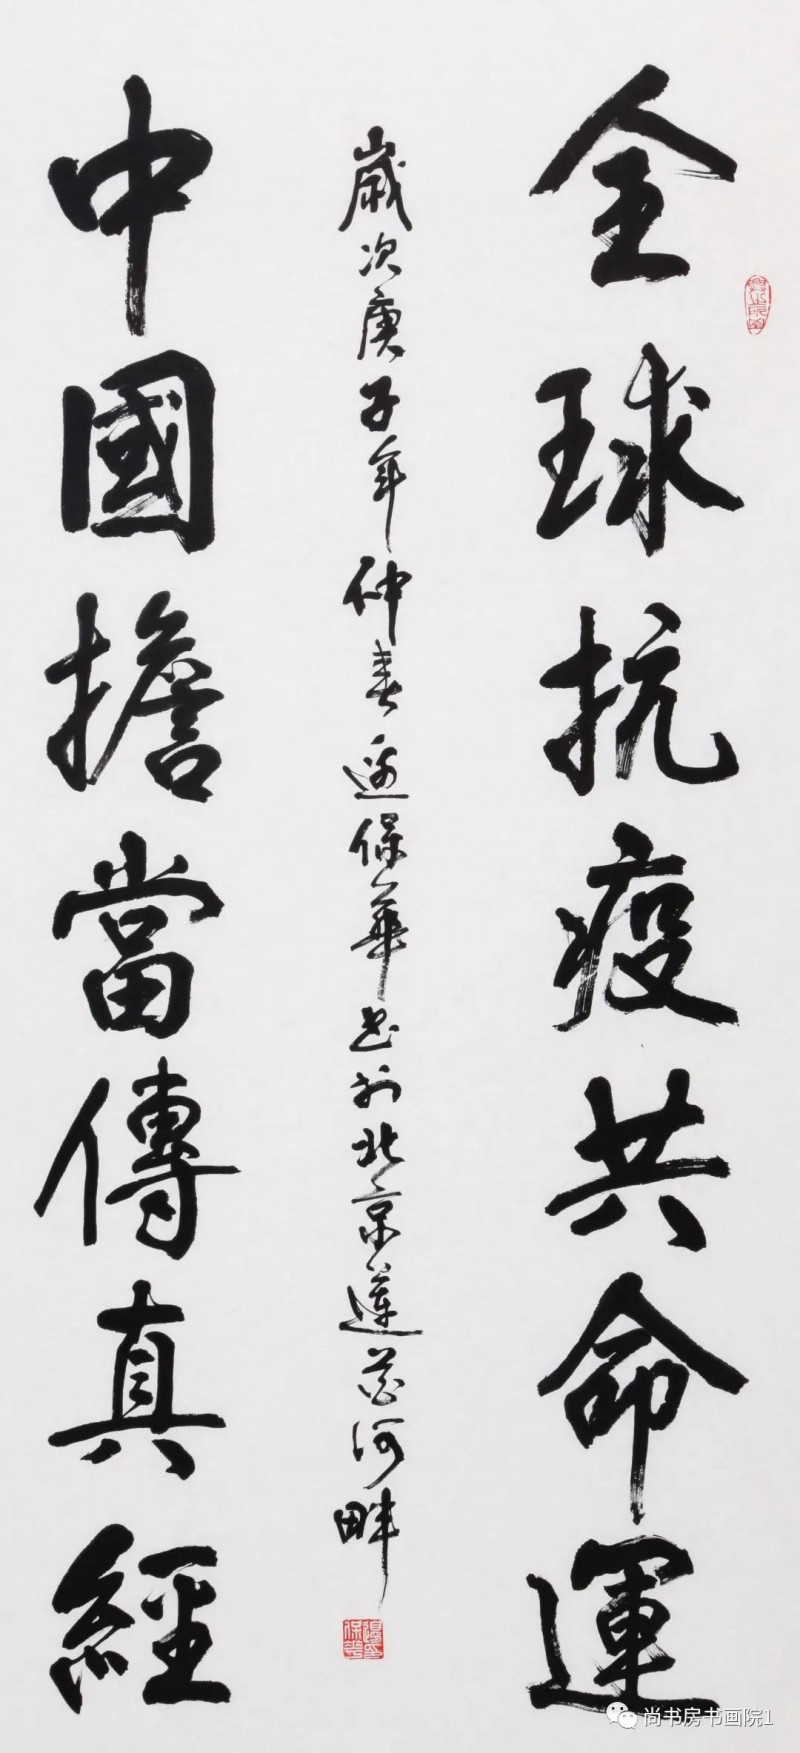 全球抗疫共命運
中國擔當傳真經
歲次庚子年仲春保華书於北京蓮花河畔
尚书房书画院1